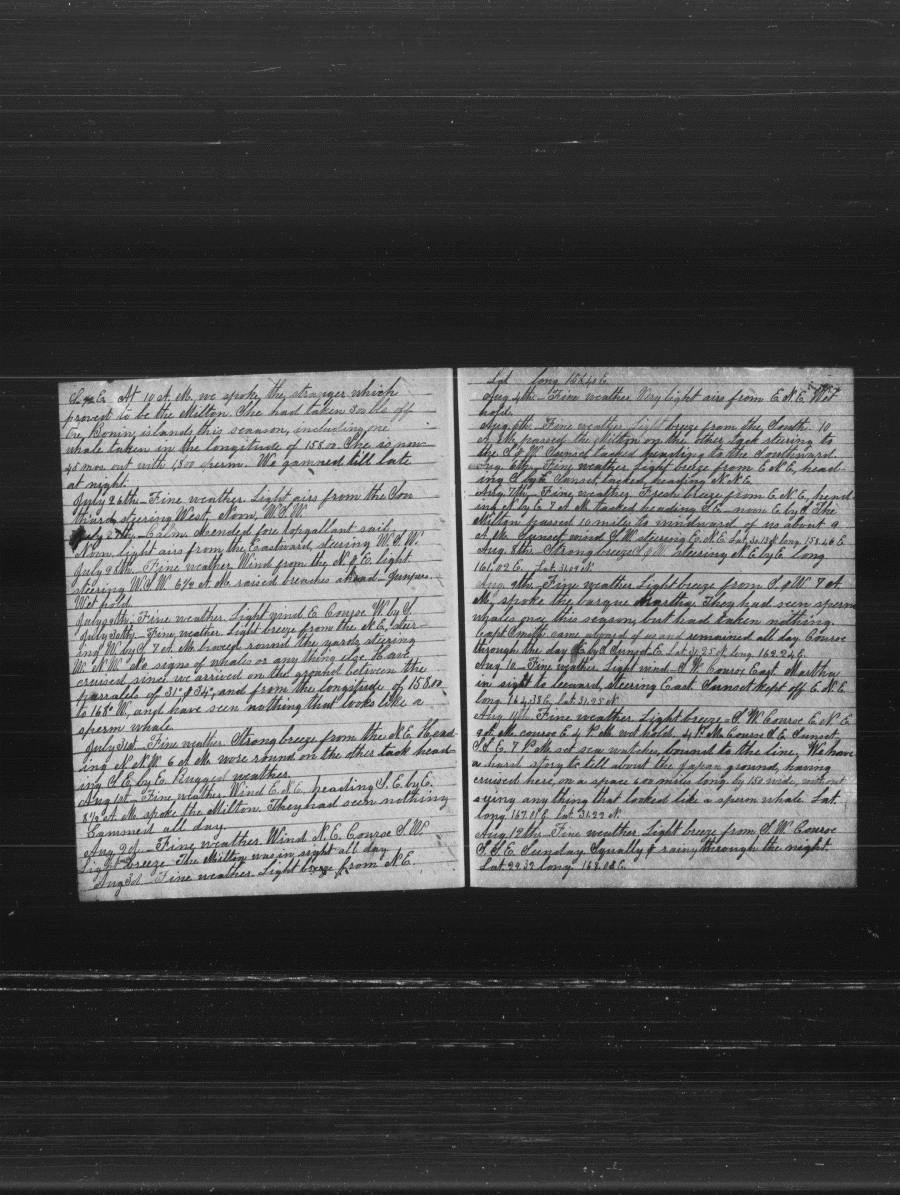 S. & E. At 10 A.M. we spoke the stranger which
proved to be the Milton. She had taken 30 blls off
the Bonin islands this season, including one
whale taken in the longitude of 158.00. She is now
45 mos. out with 1300 sperm. We gammed till late
at night.
July 26th - Fine weather. Light airs from the Sou
thard, steering West. Noon, W.S.W.
July 27th - Calm. Mended fore topgallant sail.
Noon, light airs from the Eastward, steering W.S.W.
July 28th. Fine weather. Wind from the N. & E. light
steering W.S.W. 6 1/2 A.M. raised breaches ahead - Jumpers.
Wet hold.
July 29th - Fine weather. Light wind E. Course W. by S.
July 30th - Fine weather. Light breeze from the N.E., steer-
ing W. by S. 7 A.M. braced round the yards steering
W.N.W. No signs of whales or any thing else. Have
cruised since we arrived on the ground between the
parralels of 31° & 34°, and from the longitude of 158.00
to 168° W, and have seen nothing that looks like a
sperm whale.
July 31st - Fine weather. Strong breeze from the N.E. Head-
ing N.N.W. 6 A.M. wore round on the other tack head-
ing S.E. by E. Rugged weather.
Aug 1st - Fine weather. Wind E.N.E., heading S.E. by E.
8 1/2 A.M. spoke the Milton. They had seen nothing
Gammed all day.
Aug 2d - Fine weather. Wind N.E. Conrse S.W.
Light breeze. The Milton was in sight all day
Aug 3d - Fine weather. Light breeze from N.E.
Lat long 158.40 E.
Aug 4th - Fine weather Very light airs from E.N.E. Wet
hold.
Aug 5th. Fine weather, light breeze from the South. 10
A.M. passed the Milton on the other tack steering to
the S. & W. Sunset tacked heading to the Southward.
Aug 6th, Fine weather Light breeze from E.N.E, head-
ing S. by E. Sunset tacked heading N.N.E.
Aug 7th, Fine weather. Fresh breeze from E.N.E, head
ing N. by E. 7 A.M. tacked heading S.E. - noon E. by S. The
Milton passed 10 miles to windward of us about 9
A.M. Sunset wind S.W. steering E.N.E. Lat. 30.13 N. long. 158.46 E.
Aug. 8th - Strong breeze S & W steering N.E. by E. long
161,02 E. Lat. 31.09 N.
Aug. 9th - Fine weather Light breeze from S. & W. 7 A.
M., spoke the barque Martha. They had seen sperm
whales once this season, but had taken nothing.
Capt. Smith came aboard of us and remained all day. Course
through the day E. by S. Sunset E. Lat. 31.25 N. long. 162.24 E.
Aug 10 - Fine weather Light wind - S.W. Course East. Martha
in sight to leeward, steering East. Sunset kept off E.N.E.
long 164,38 E. Lat. 31.25 N.
Aug 11th, Fine weather. Light breeze - S.W. Course E.N.E.
9 A.M. course E. 4 P.M. wet hold. 4 P.M. Course S.E. Sunset
S.S.E. 7 P.M. set sea watches, bound to the line, We have
a hard story to tell about the Japan ground, having
cruised here, on a space 600 miles long by 150 wide, without
seeing any thing that looked like a sperm whale. Lat.
long 167.01 E. Lat. 31.22 N.
Aug 12th - Fine weather. Light breeze from S.W. Course
S.S.E. Sunday. Squally & rainy through the night.
Lat. 29.39 long. 168.18 E.